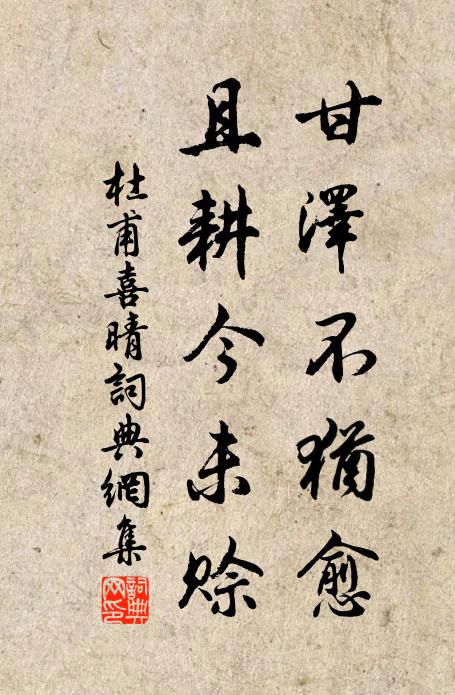 甘澤不猶愈
且耕今未賒
杜甫喜晴詞典網集
詞典网印